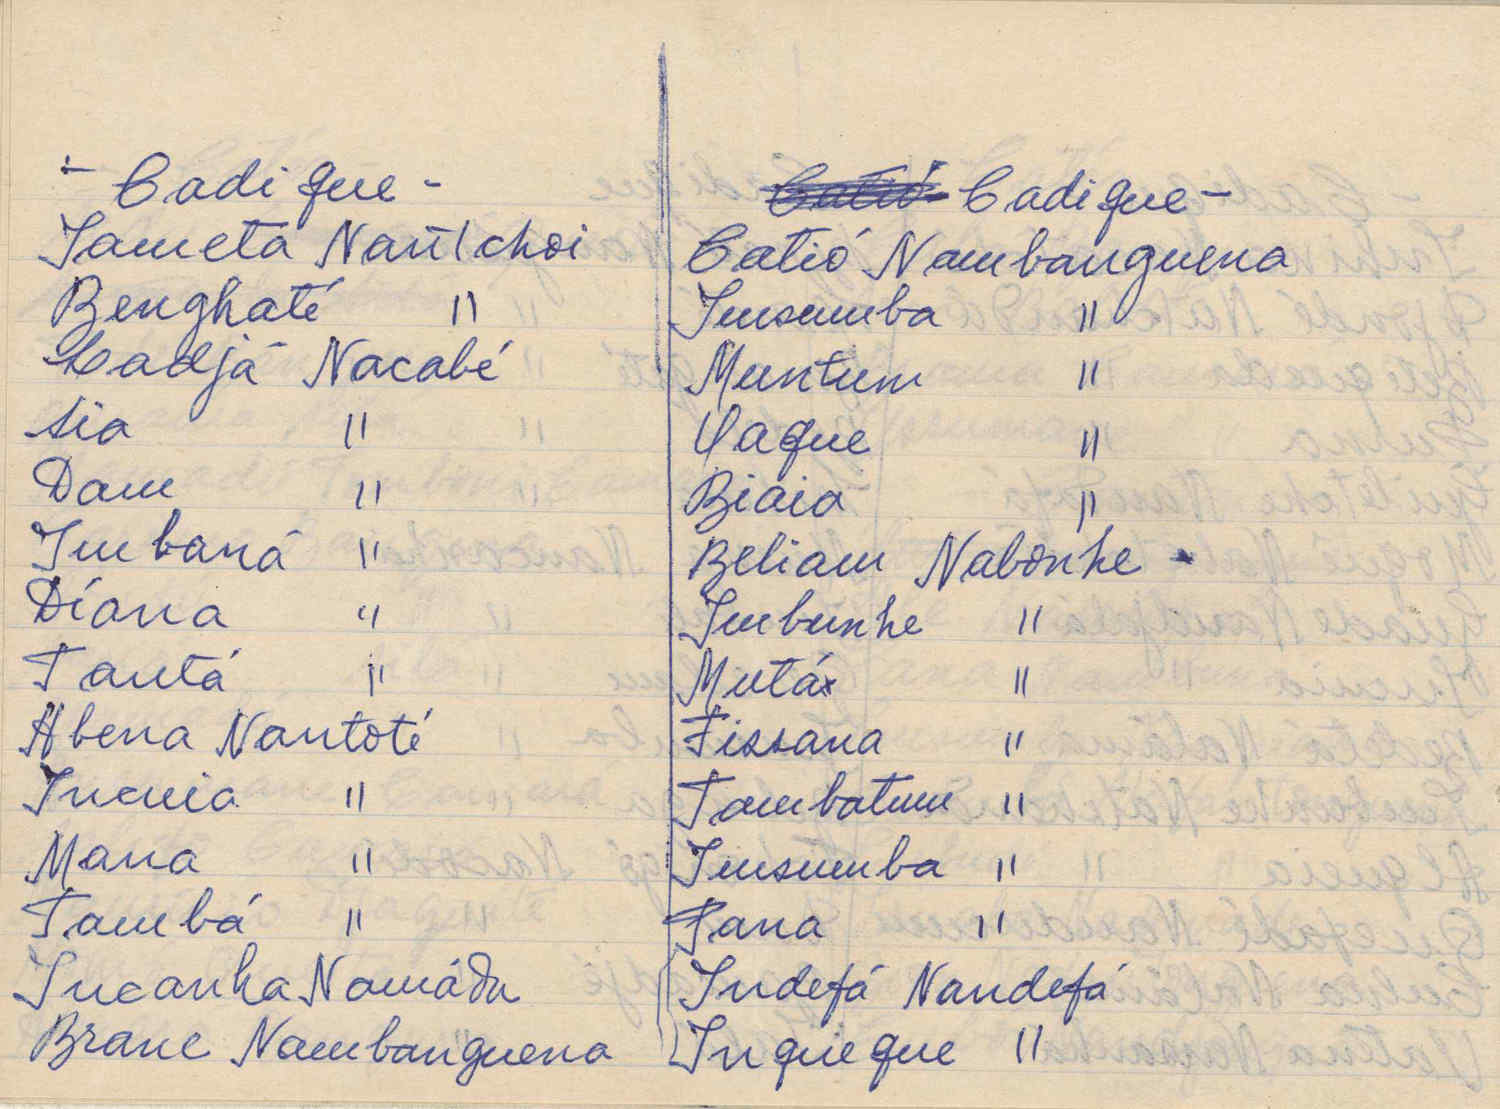 - Cadique -
Sameta Nantchoi
Benghaté "
Cadjá Nacabé
Sia "
Dam "
Imbaná "
Diana "
Tantá "
Abena Nantoté
Incuia "
Mana "
Tambá "
Incanha Namádu
Brane Nambanguena
Cadique -
Catió Nambanguena
Insumba "
Muntum "
Yaque "
Biaia "
Beliam Nabonhe
Imbunhe "
Mutá "
Fissana "
Tambatum "
Insumba "
Pana "
Indefá Nandefá
Inqueque "